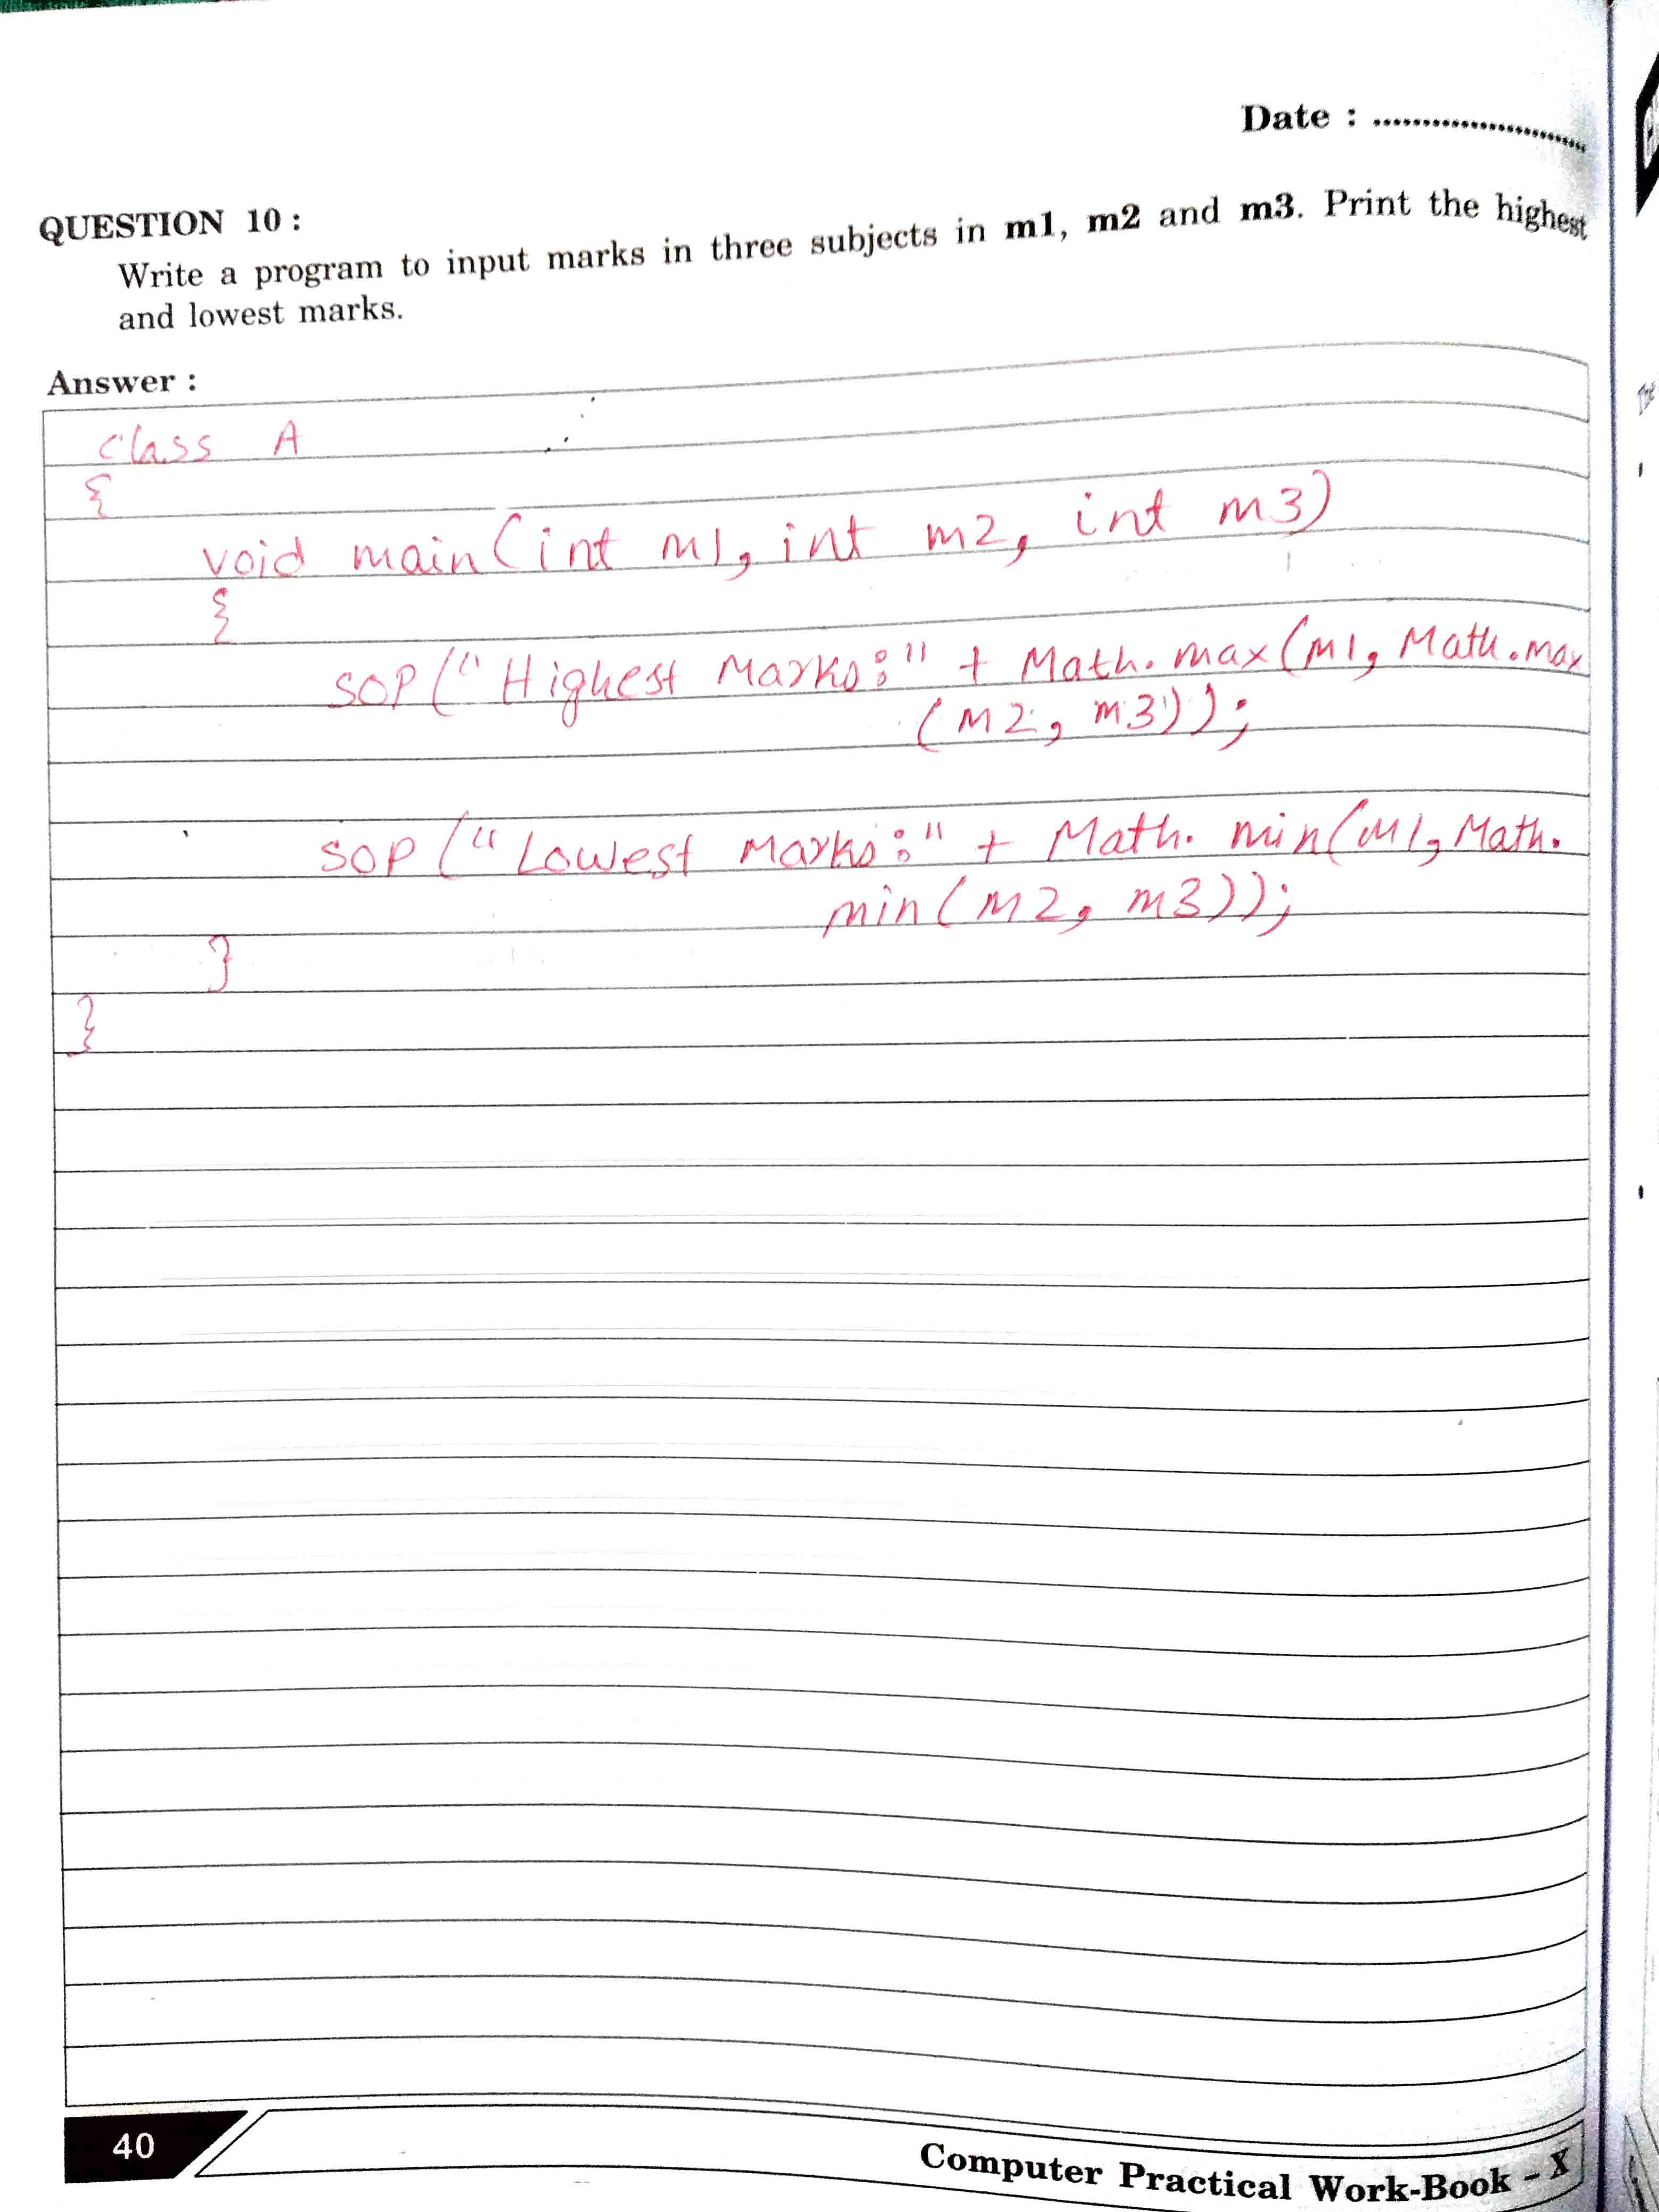 Date : ............................
QUESTION 10 :
Write a program to input marks in three subjects in m1, m2 and m3. Print the highest
and lowest marks.
Answer :
class A
{
void main(int m1, int m2, int m3)
{
SOP("Highest Marks:" + Math.max(m1, Math.max
(m2, m3));
SOP("Lowest Marks:" + Math.min(m1, Math.
min(m2, m3));
}
}
40
Computer Practical Work-Book - X